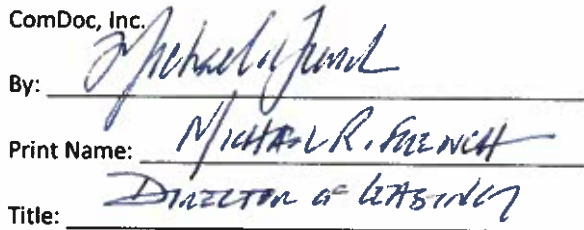 ComDoc, Inc.
By: Michael R. French
Print Name: MICHAEL R. FRENCH
Title: DIRECTOR OF LEASING